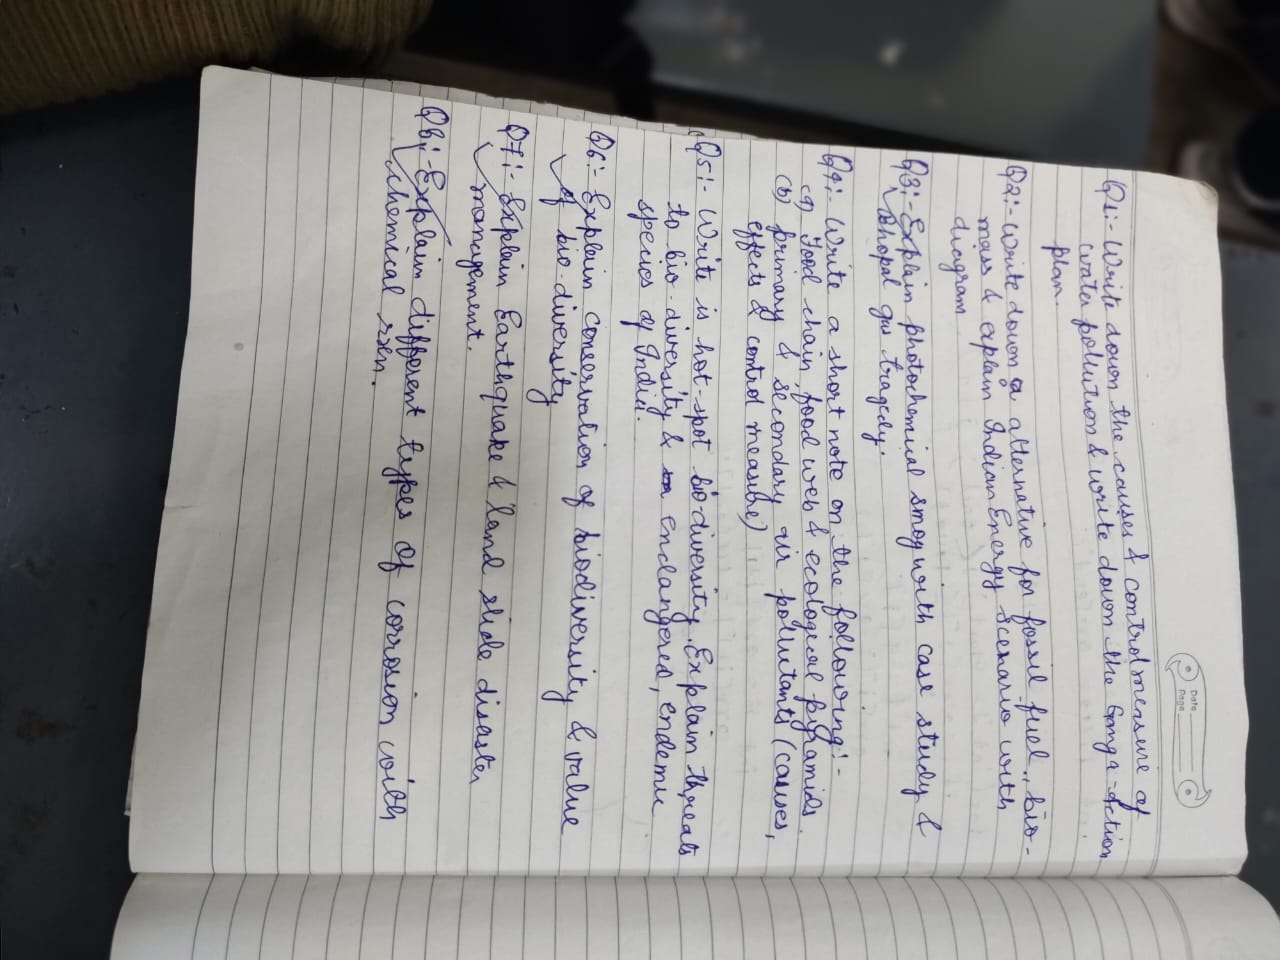 Date
Page
Q1:- Write down the causes & control measure of
water pollution & write down the Ganga-Action
plan.
Q2:- Write down a alternative for fossil fuel., bio-
mass & explain Indian Energy Scenario with
diagram
Q3:- Explain photochemical smog with case study &
Bhopal gas tragedy.
Q4:- Write a short note on the following:-
(a) Food chain, food web & ecological pyramids.
(b) primary & secondary air pollutants (causes,
effects & control measure)
Q5:- Write is hot-spot bio-diversity. Explain threats
to bio-diversity & endangered, endemic
species of India.
Q6:- Explain conservation of biodiversity & value
of bio-diversity
Q7:- Explain Earthquake & land slide disaster
management.
Q8:- Explain different types of corrosion with
chemical rxn.